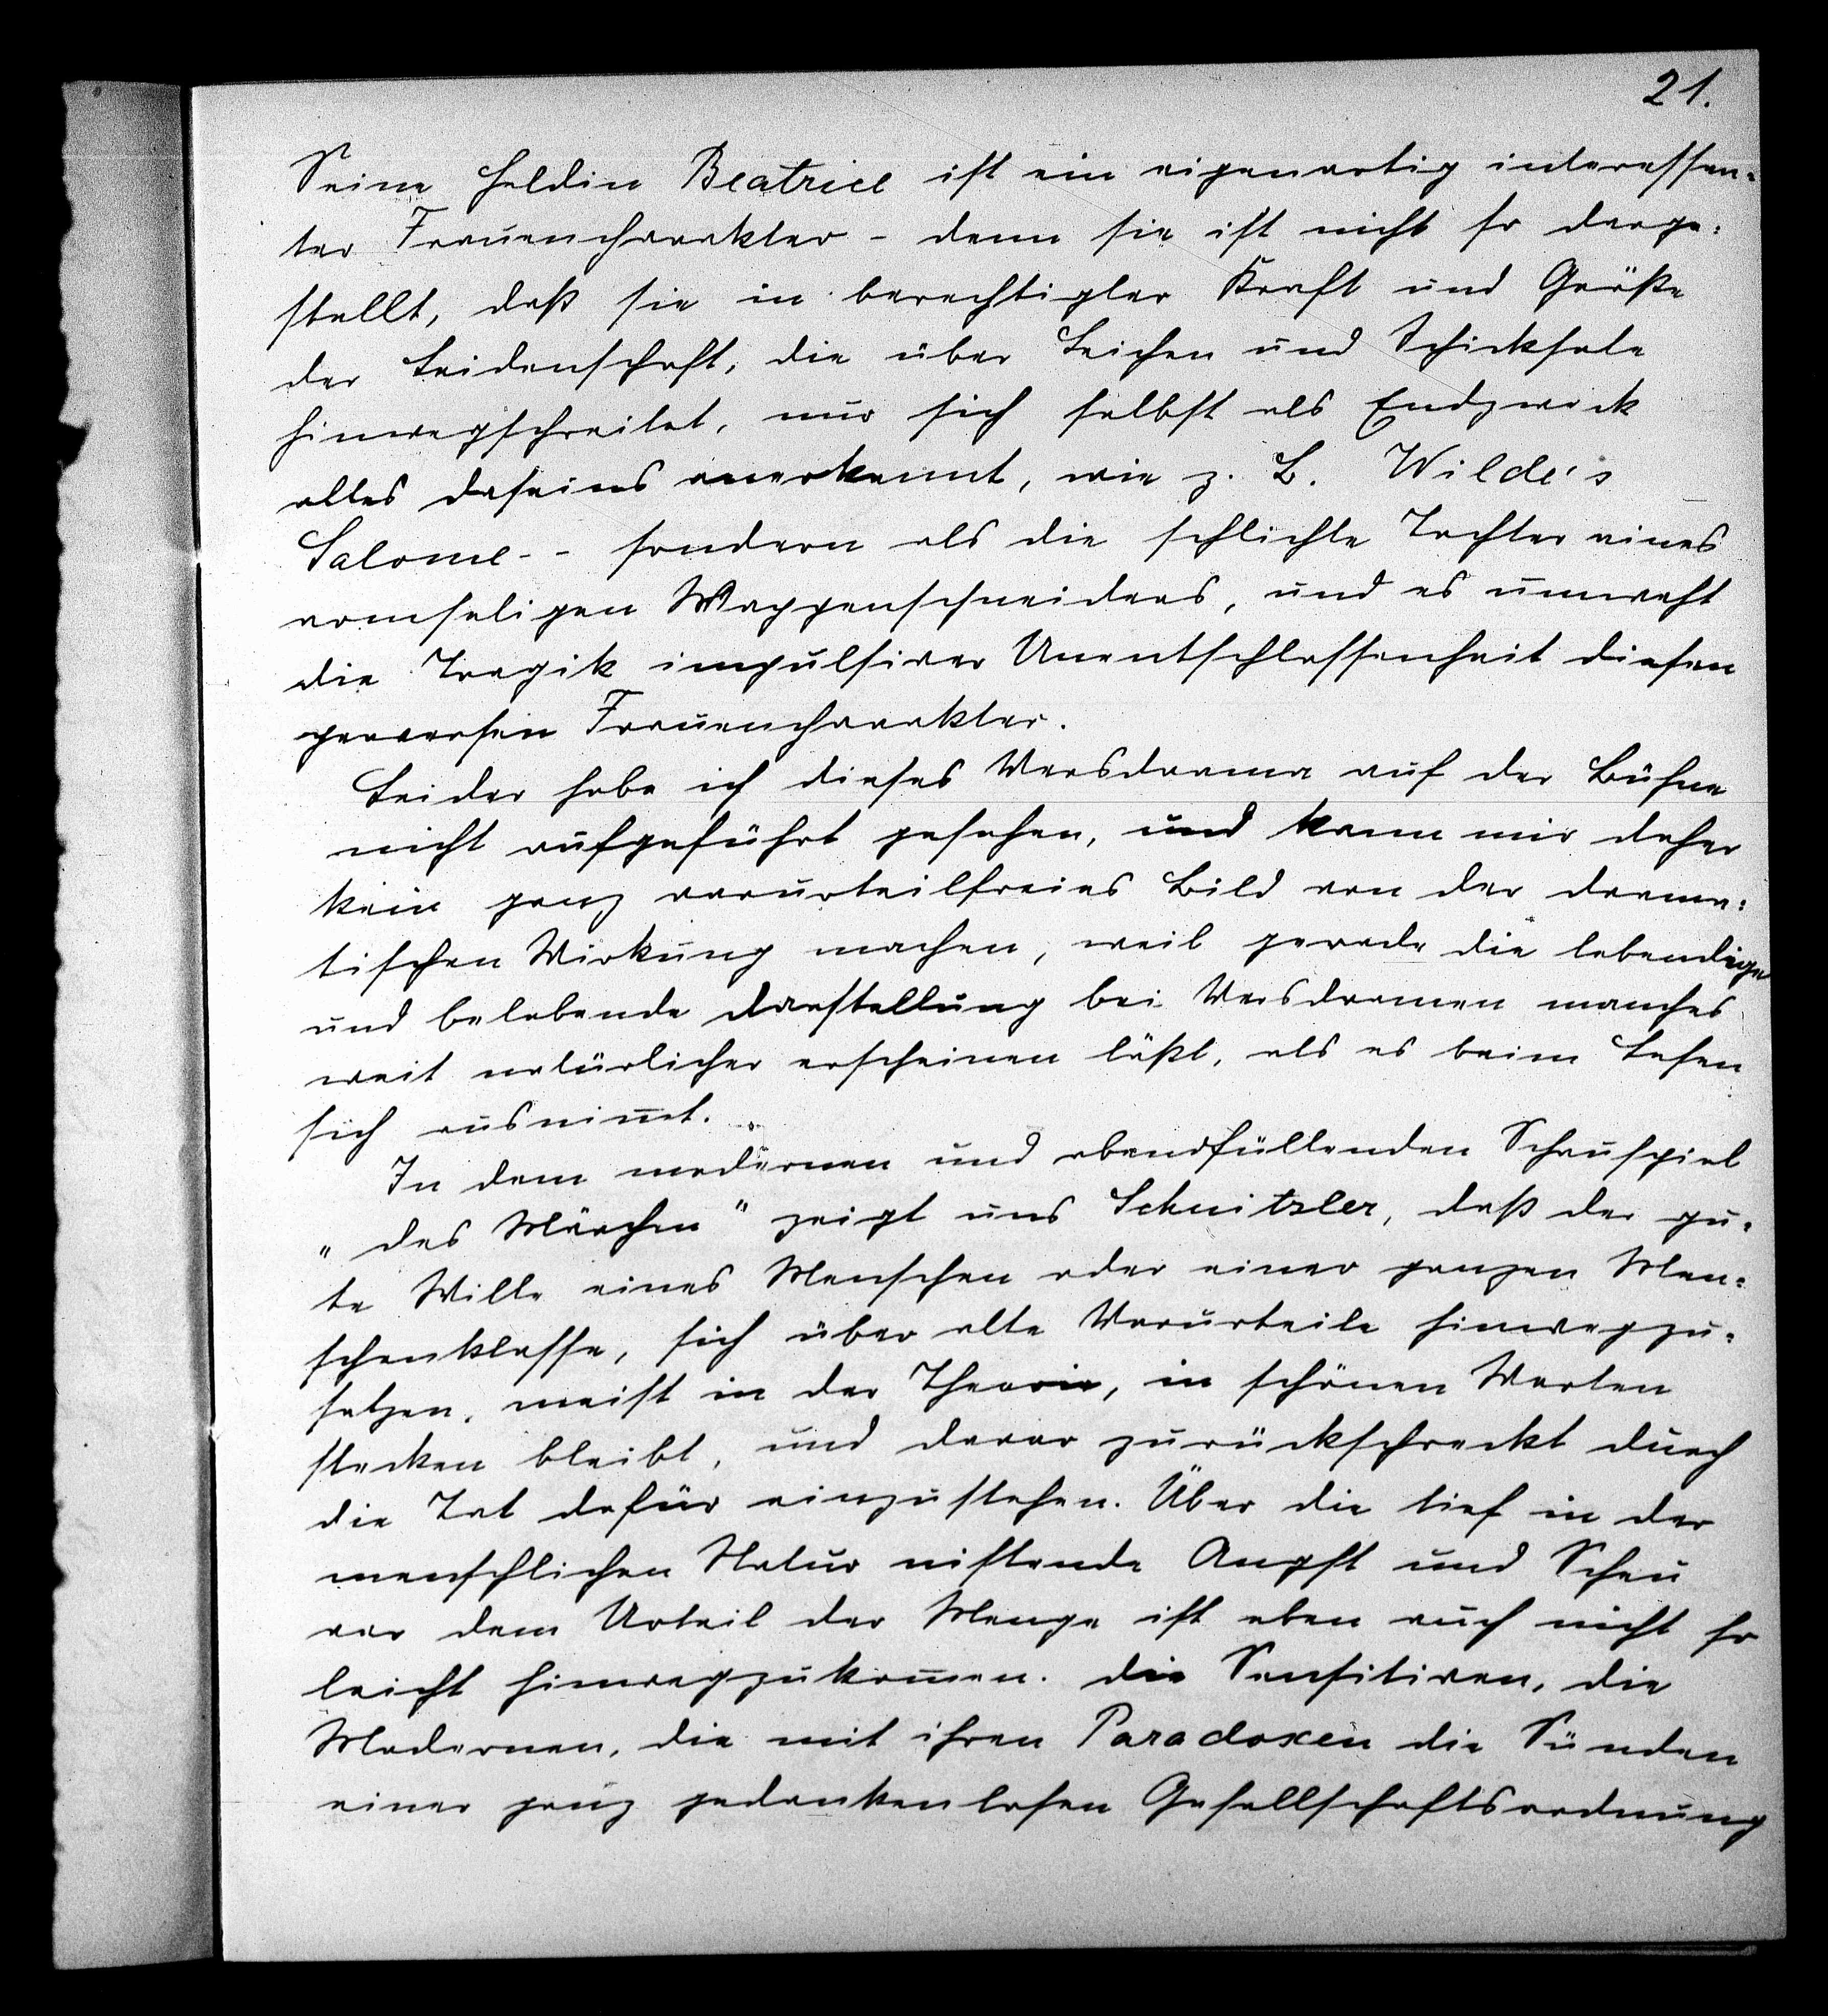 21.
Seine Heldin Beatrice ist ein eigenartig interessan=
ter Frauencharakter - denn sie ist nicht so darge=
stellt, daß sie in berechtigter Kraft und Größe
der Leidenschaft, die über Leichen und Schicksale
hinwegschreitet, nur sich selbst als Endzweck
alles Daseins anerkennt, wie z. B. Wilde's
Salome-- sondern als die schlichte Tochter eines
armseligen Wappenschneiders, und es umweht
die Tragik impulsiver Unentschlossenheit diesen
perversen Frauencharakter.
Leider habe ich dieses Versdrama auf der Bühne
nicht aufgeführt gesehen, und kann mir daher
kein ganz vorurteilfreies Bild von der drama=
tischen Wirkung machen, weil gerade die lebendige
und belebende Darstellung bei Versdramen manches
weit natürlicher erscheinen läßt, als es beim Lesen
sich ausnim̅t.
In dem modernen und abendfüllenden Schauspiel
„das Märchen" zeigt uns Schnitzler, daß der gu=
te Wille eines Menschen oder einer ganzen Men=
schenklasse, sich über alte Vorurteile hinwegzu=
setzen, meist in der Theorie, in schönen Worten
stecken bleibt, und davor zurückschreckt durch
die Tat dafür einzustehen. Über die tief in der
menschlichen Natur nistende Angst und Scheu
vor dem Urteil der Menge ist eben auch nicht so
leicht hinwegzukom̅en. Die Sensitiven, die
Modernen, die mit ihren Paradoxen die Sünden
einer ganz gedankenlosen Gesellschaftsordnung